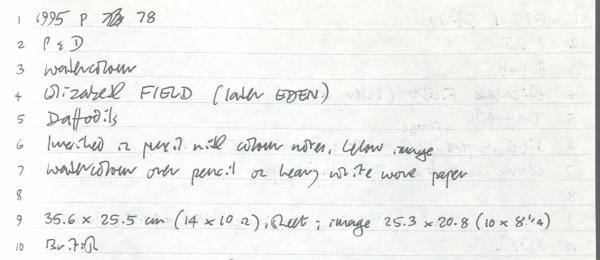 1 1995 P 78
2 P & D
3 watercolour
4 Elizabeth FIELD (later EDEN)
5 Daffodils
6 Inscribed in pencil with colour notes, below image
7 watercolour over pencil on heavy white wove paper
8
9 35.6 x 25.5 cm (14 x 10 in), sheet; image 25.3 x 20.8 (10 x 8 1/4)
10 British